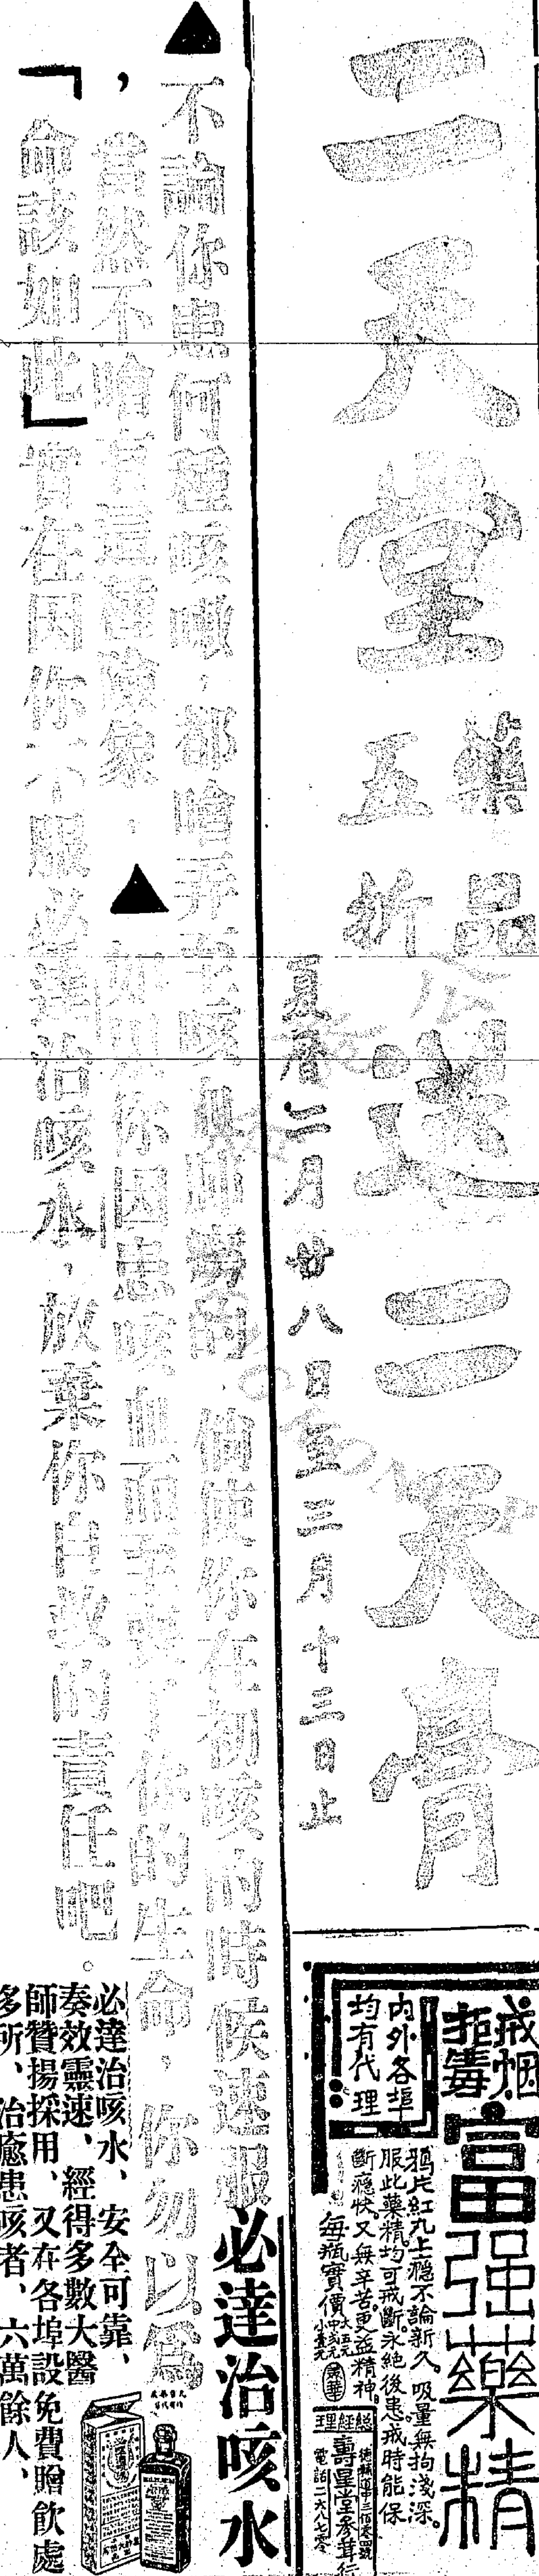 二天堂
藥品
五折
送二天膏
夏曆二月廿八日至三月十三日止
戒烟
拒毒
富强藥精
內外各埠
均有代理
鴉片紅丸上癮不論新久。吸量無拘淺深。
服此藥精。均可戒斷。永絕後患。戒時能保
斷癮快。又無辛苦。更益精神。
每瓶實價
總經理
壽星堂參茸行
電話二六八七零
▲不論你患何種咳嗽，都會弄至咳血肺癆的，倘使你在初咳的時候速服必達治咳水
，當然不會有這種險象，▲如果你因患咳血而至喪了你的生命，你勿以爲
「命該如此」實在因你不服必達治咳水，放棄你自救的責任吧。
必達治咳水、安全可靠、
奏效靈速、經得多數大醫
師贊揚採用、又在各埠設免費贈飲處
多所、治癒患咳者、六萬餘人、